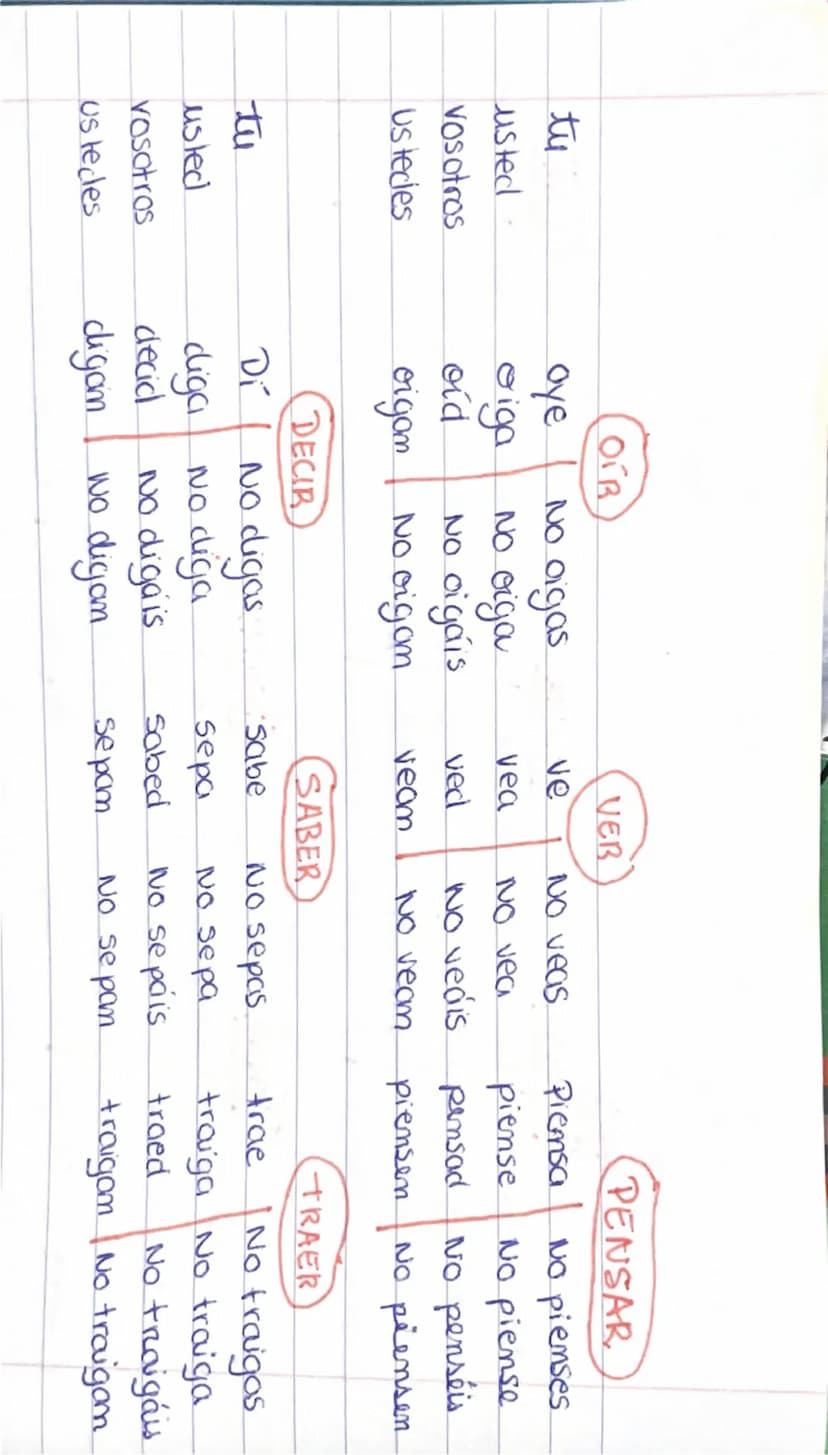 OÍR VER PENSAR
tu oye No oigas ve No veas Piensa No pienses
usted oiga No oiga vea No vea piense No piense
vosotros oíd No oigáis ved No veáis pensad No penséis
ustedes oigan No oigan vean No vean piensen No piensen
DECIR SABER TRAER
tu Dí No digas sabe No sepas trae No traigas
usted diga No diga sepa No sepa traiga No traiga
vosotros decid No digáis sabed No sepáis traed No traigáis
ustedes digan No digan sepan No sepan traigan No traigan